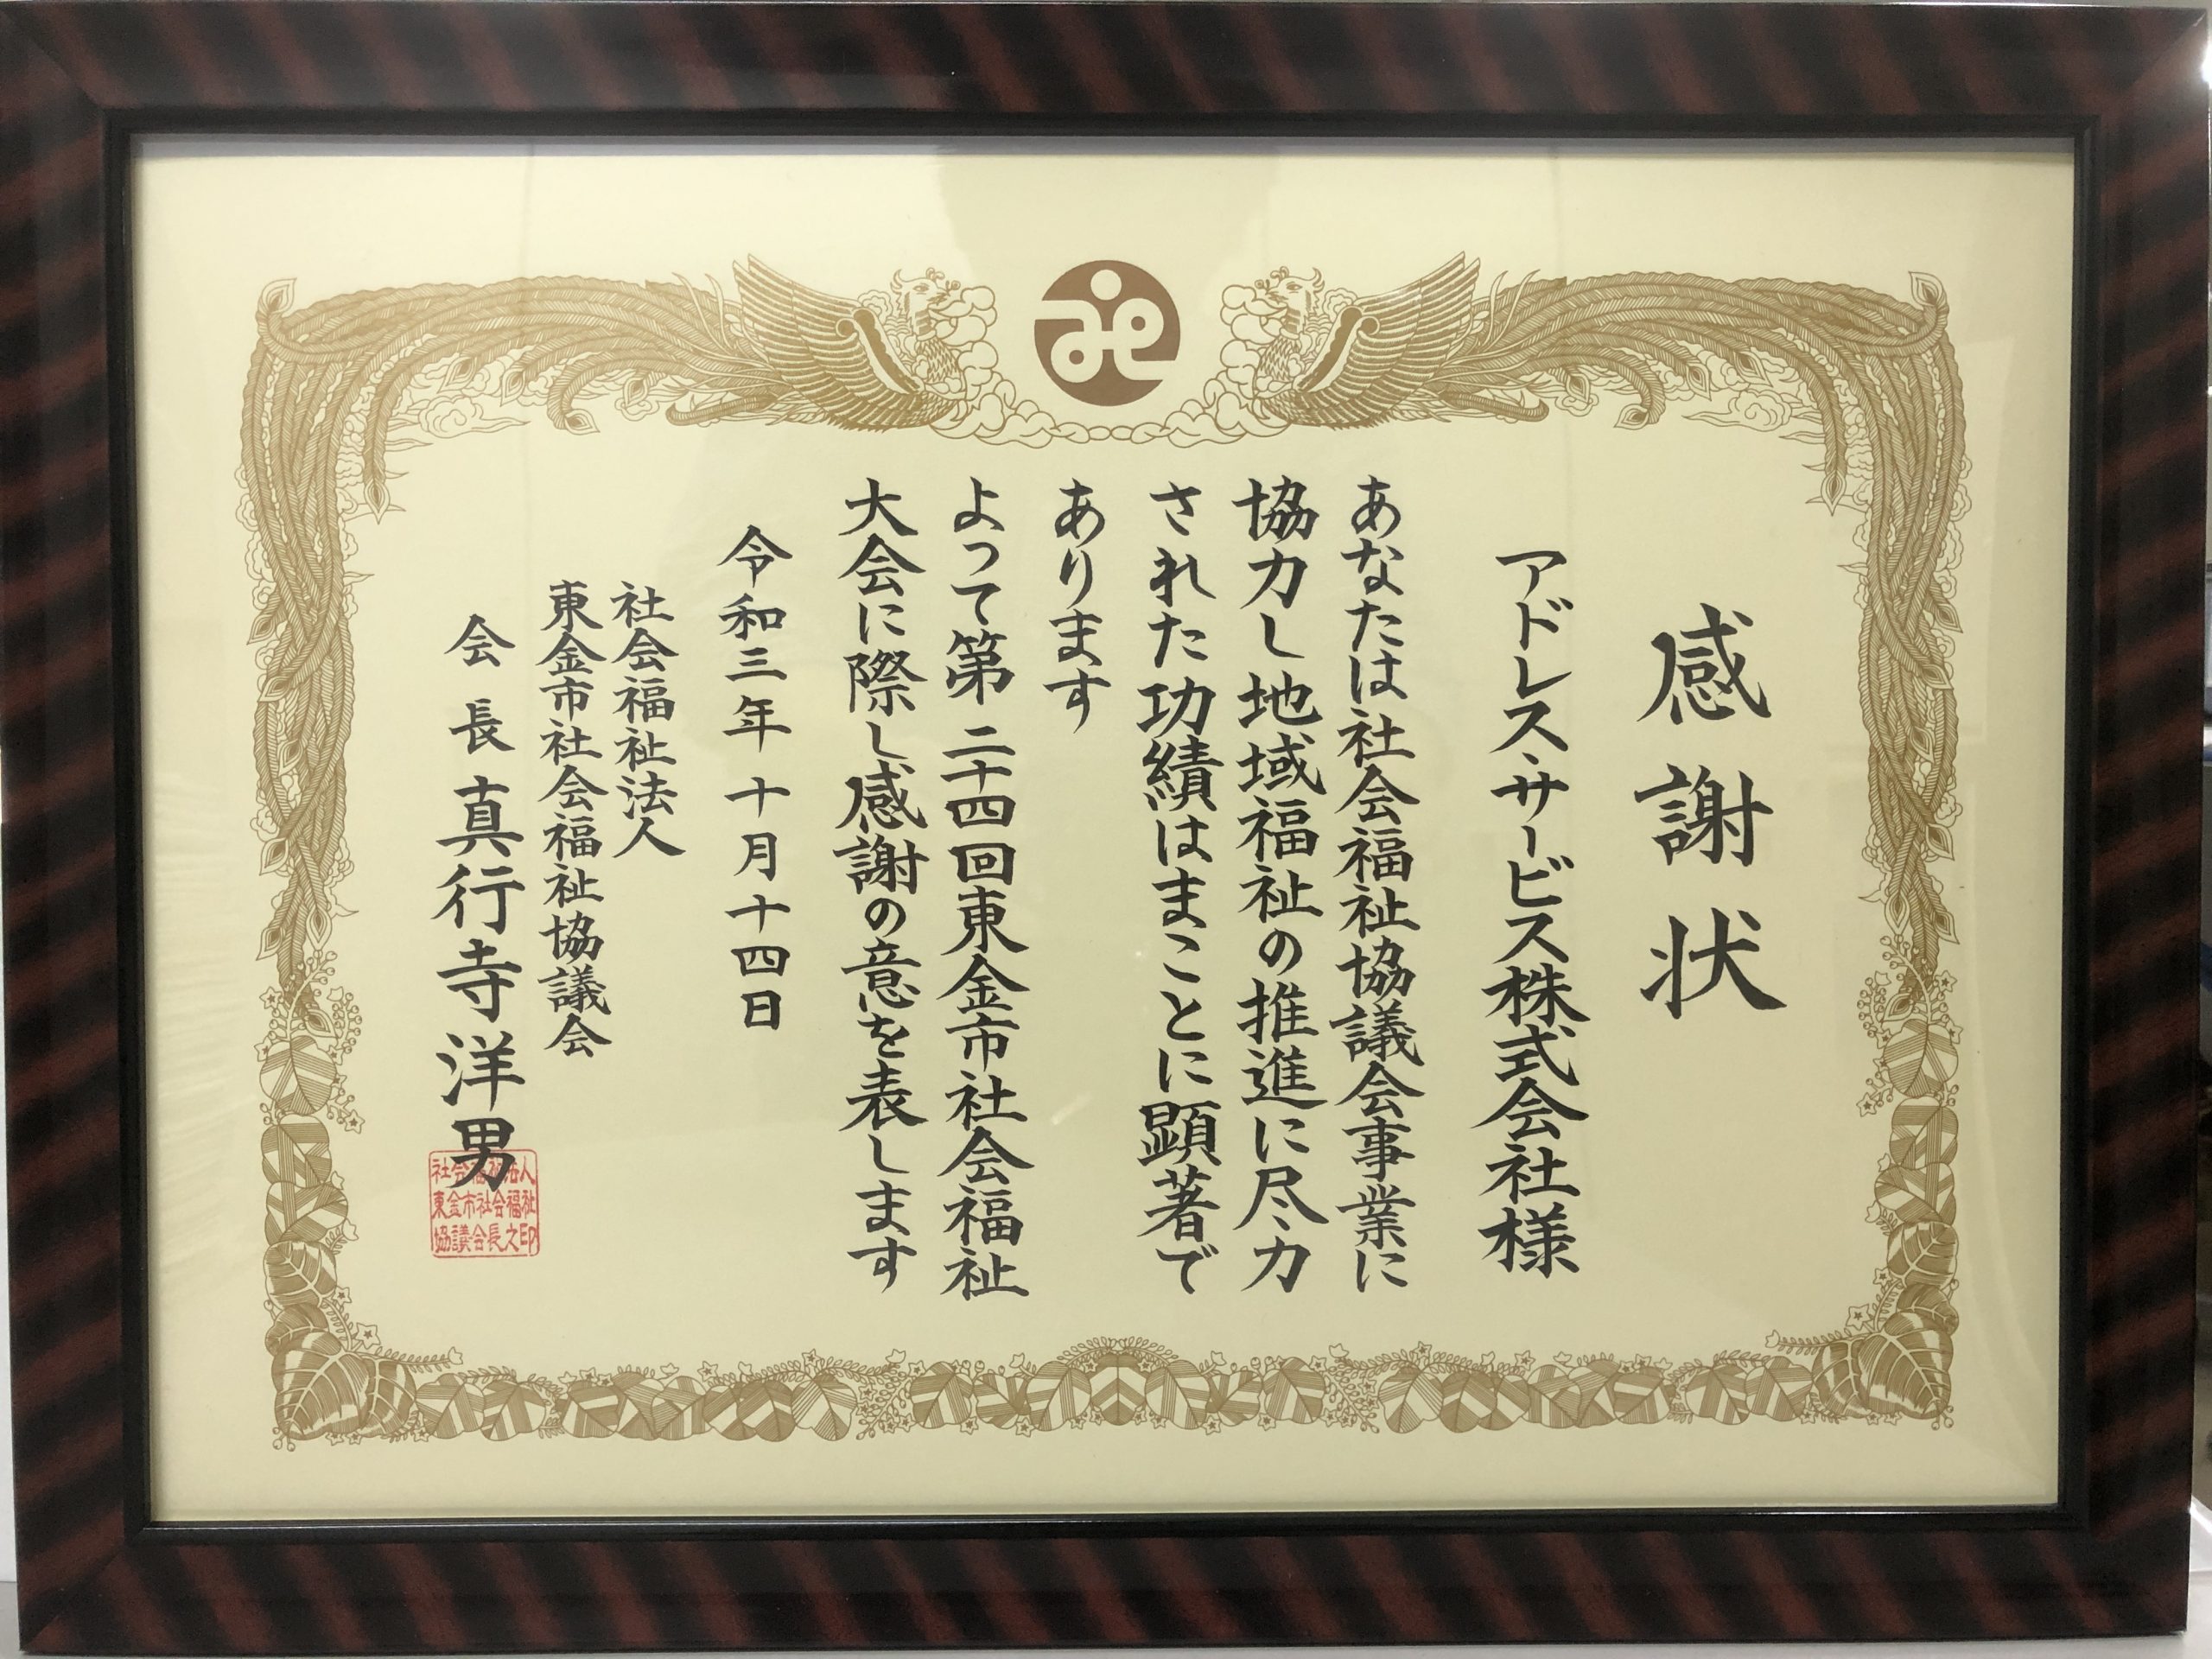 感謝状
アドレス・サービス株式会社様
あなたは社会福祉協議会事業に
協力し地域福祉の推進に尽力
された功績はまことに顕著で
あります
よって第二十四回東金市社会福祉
大会に際し感謝の意を表します
令和三年十月十四日
社会福祉法人
東金市社会福祉協議会
会長 真行寺洋男
社会福祉法人
東金市社会福祉
協議会長之印